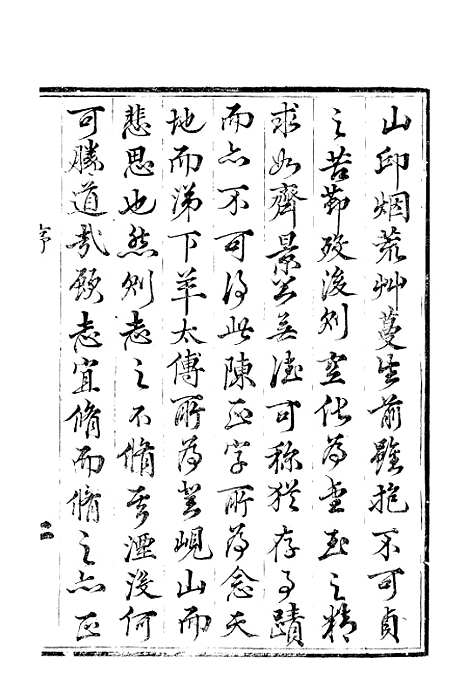 山邱烟荒艸蔓生前雖抱不可貞
之苦節歿後則空化為虫玉之精
求如齊景公無德可称猶存事蹟
而亦不可得此陳正字所為念天
地而涕下羊太傅所為登峴山而
悲思也然則志之不脩其湮没何
可勝道哉顾志宜脩而脩之亦正
序
二